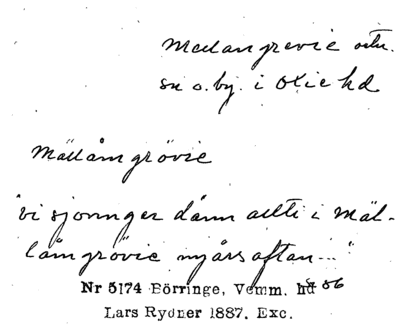 Mellangrevie ortn.
sn o. by. i Oxie hd
Mällåmgrövie
"vi sjonnger dånn allti i Mäl-
låmgrövie nyårsaftan..."
Nr 5174 Börringe, Vemm. hd s 56
Lars Rydner 1887. Exc.